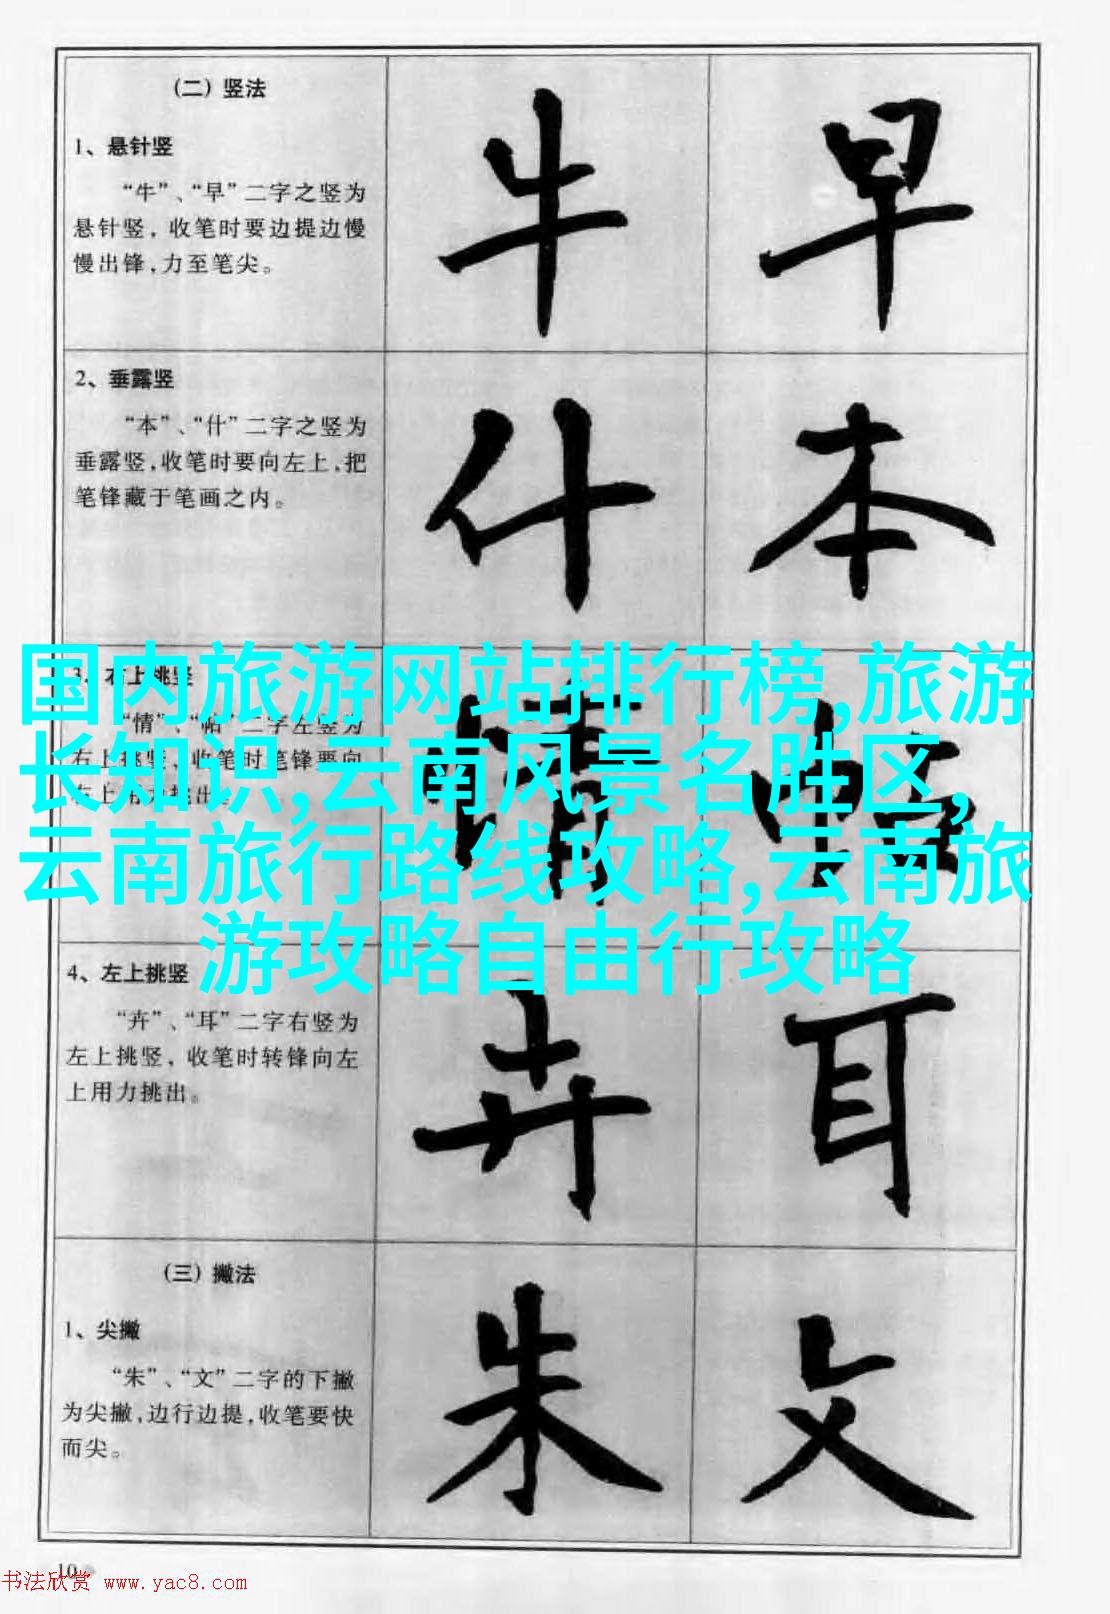 （二）竖法
1、悬针竖
“牛”、“早”二字之竖为
悬针竖，收笔时要边提边慢
慢出锋，力至笔尖。
牛 早
2、垂露竖
“本”、“什”二字之竖为
垂露竖，收笔时要向左上，把
笔锋藏于笔画之内。
什 本
3、右上挑竖
“情”、“帖”二字左竖为
右上挑竖，收笔时笔锋要向
情 帖
国内旅游网站排行榜,旅游
长知识,云南风景名胜区,
云南旅行路线攻略,云南旅
游攻略自由行攻略
4、左上挑竖
“卉”、“耳”二字右竖为
左上挑竖，收笔时转锋向左
上用力挑出。
卉 耳
（三）撇法
1、尖撇
“朱”、“文”二字的下撇
为尖撇，边行边提，收笔要快
而尖。
朱 文
10
书法欣赏 www.yac8.com